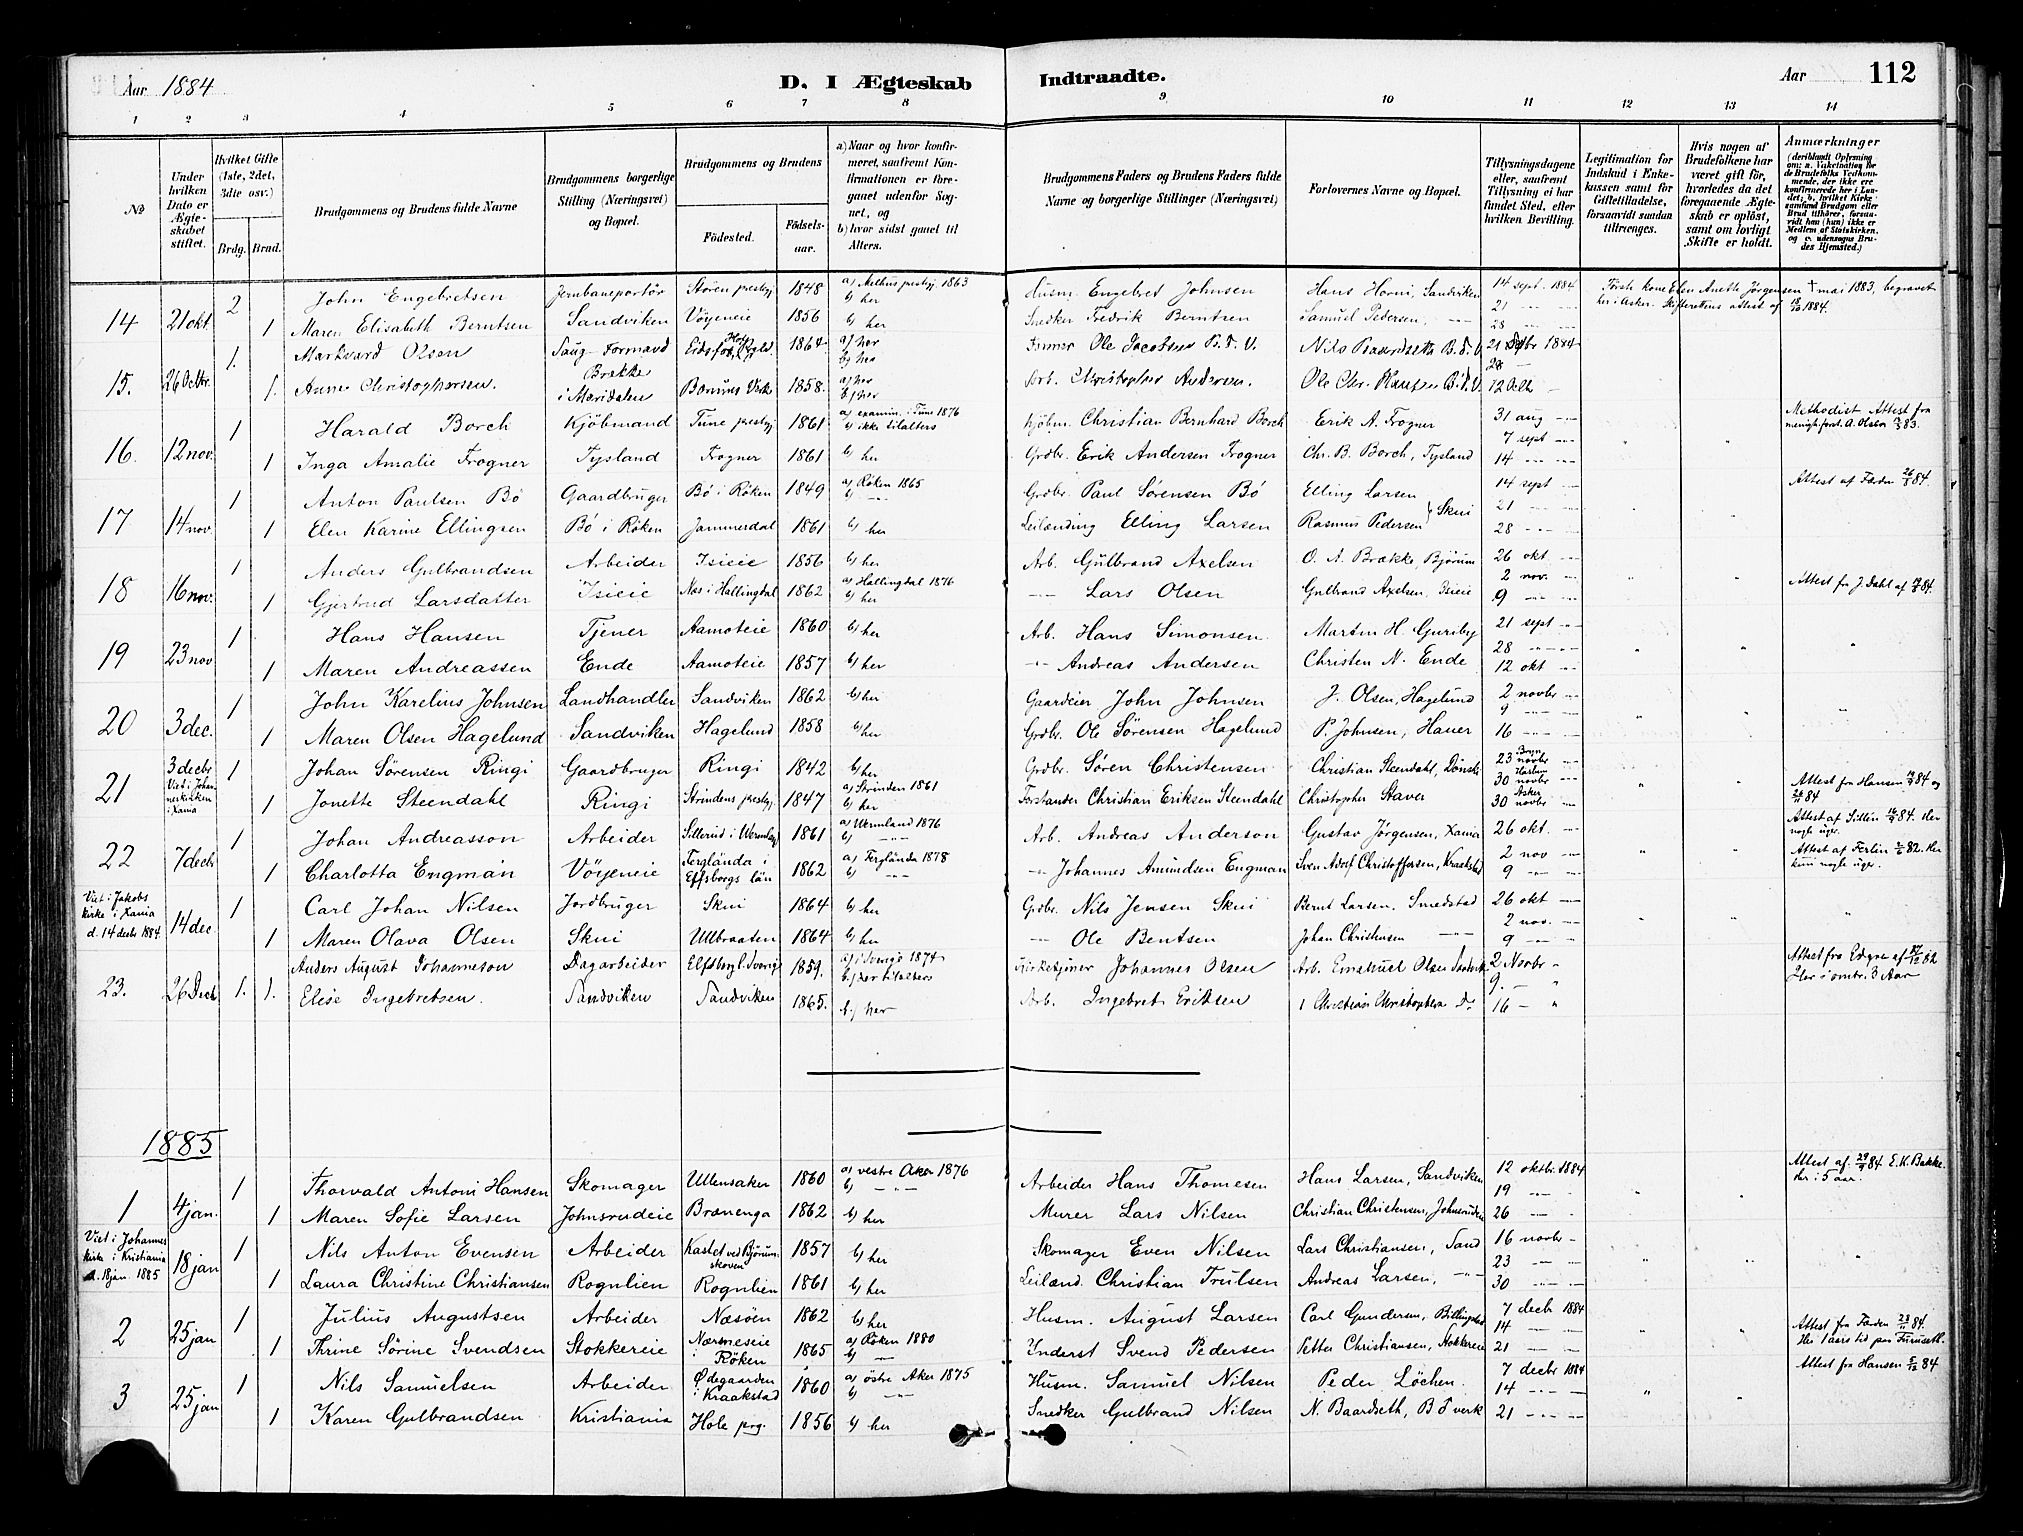 Aar 1884
D. I Ægteskab Indtraadte.
Aar 112
1 2 3 4 5 6 7 8 9 10 11 12 13 14
No
Under hvilken Dato er Ægteskabet stiftet.
Hvilket Gifte (1ste, 2det, 3dte osv.)
Brdg. Brud.
Brudgommens og Brudens fulde Navne
Brudgommens borgerlige Stilling (Næringsvei) og Bopæl.
Brudgommens og Brudens
Födested. Födselsaar.
a) Naar og hvor konfirmeret, saafremt Konfirmationen er foregaaet udenfor Sognet, og
b) hvor sidst gaaet til Alters.
Brudgommens Faders og Brudens Faders fulde Navne og borgerlige Stillinger (Næringsvei)
Forlovernes Navne og Bopæl.
Tillysningsdagene eller, saafremt Tillysning ei har fundet Sted, efter hvilken Bevilling.
Legitimation for Indskud i Enkekassen samt for Giftetilladelse, forsaavidt saadan tiltrænges.
Hvis nogen af Brudefolkene har været gift för, hvorledes da det foregaaende Ægteskab er oplöst, samt om lovligt Skifte er holdt.
Anmærkninger
(deriblandt Oplysning om: a. Vakcination for de Brudefolks Vedkommende, der ikke ere konfirmerede her i Landet; b. hvilket Kirkesamfund Brudgom eller Brud tilhörer, forsaavidt han (hun) ikke er Medlem af Statskirken, og c. udensogns Brudes Hjemsted.)
14 21 okt. 2 John Engebretsen Jernbaneportør Støren prestgj 1848 a) Melhus prestgj 1863 b) her Husm. Engebret Johnsen Hans Horni, Sandviken 14 sept. 1884 Første kone Ellen Anette Jørgensen † mai 1883, begravet
1 Maren Elisabeth Berntsen Sandviken Vøyeneie 1856 b) her Snedker Fredrik Berntsen Samuel Pedersen, 21 28 her i Asker. Skifterettens attest af 1884.
15. 26 Octbr. 1. Markvard Olsen Saug-Formand 1864 a) her b) her Ole Jacobsen B. V. Nils 21 Sptbr 1884
1. Anne Christophersen. Brække i Maridalen Bærums Verk 1858. a) her b) her Arb. Christopher Andersen. Ole Chr. 28 12 Octbr
16. 12 nov. 1 Harald Borch Kjøbmand Tune prestgj 1861 a) examin. i Tune 1876 b) ikke tilalters Kjøbm. Christian Bernhard Borch Erik A. Frogner 31 aug 7 sept Methodist Attest fra menigh.forst. A. Olsen 83.
1 Inga Amalie Frogner Tysland Frogner 1861 b) her Grdbr. Erik Andersen Frogner Chr. B. Borch, Tysland 14
17 14 nov. 1 Anton Paulsen Bö Gaardbruger Bö i Röken 1849 a) Röken 1865 b) Grdbr. Paul Sörensen Bö Elling Larsen 14 sept Attest af Færden 26/8 84.
1 Elen Karine Ellingsen Bö i Röken Jammerdal 1861 b) her Leilænding Elling Larsen Rasmus Pedersen } Skui 21 28
18 16 nov. 1 Anders Gulbrandsen Arbeider Isieie 1856 b) her Arb. Gulbrand Axelsen O. A. Brække, Bjørum 26 okt 2 nov.
1 Gjertrud Larsdatter Isieie Næs i Hallingdal 1862 a) Hallingdal 1876 b) her Lars Olsen Gulbrand Axelsen, Isieie 9 Attest fra J Dahl af 84.
19 23 nov 1 Hans Hansen Tjener Aamoteie 1860 b) her Arb. Hans Simonsen Martin H. Guriby 21 sept
1 Maren Andreassen Ende Aamoteie 1857 b) her Andreas Andersen Christen N. Ende 28 12 okt
20 3 dec. 1 John Karelius Johnsen Landhandler Sandviken 1862 b) her Gaardeier John Johnsen J. Olsen, Hagelund 2 novbr 9
1 Maren Olsen Hagelund Sandviken Hagelund 1858 b) her Grdbr. Ole Sørensen Hagelund P. Johnsen, Hauer 16
21 3 decbr Viet i Johanneskirken i Xania 1 Johan Sørensen Ringi Gaardbruger Ringi 1842 b) her Grdbr. Søren Christensen Christian Steendahl, 23 novbr 30 novbr
1 Jonette Steendahl Ringi Strindens prestgj 1847 a) Strinden 1861 b) her Forstander Christian Eriksen Steendahl Christopher Staver Asker 30 novbr Attest fra Hansen 84 og 84
22 7 decbr 1 Johan Andreasson Arbeider Sillerud i Wermland 1861 a) Wermland 1876 b) Arb. Andreas Anderson Gustav Jørgensen, Xania 26 okt. Attest af Sillén 84. Her nogle uger.
1 Charlotta Engman Vöyeneie Ferglanda i Elfsborgs län 1862 a) Ferglända 1878 b) Johannes Amundsen Engman Sven Adolf Christoffersen, Kraakstad 2 nov 9 Attest af Ferlin 82. Her kun nogle uger.
Viet i Jakobs kirke i Xania d. 14 decbr 1884. 14 dec 1 Carl Johan Nilsen Jordbruger Skui 1864 b) her Grdbr. Nils Jensen Skui Bernt Larsen, Smedstad 26 okt 2 nov.
1 Maren Olava Olsen Skui Ulbraaten 1864 b) her Ole Bentsen Johan Christensen 9
23. 26 Decb 1. Anders August Johanneson Dagarbeider Elfsborg l. Sverige 1859. a) i Sverige 1874 b) her til alters Kirketjener Johannes Olsen Arb. Emanuel Olsen Sandvik 2 Novbr 9. Attest fra af 82 Her i omtr. 3 Aar
1. Elise Ingebretsen. Sandviken Sandviken 1865. b.) her Arb. Ingebret Eriksen Christian Christophersen Do 16
1885
1 4 jan. 1 Thorvald Antoni Hansen Skomager Ullensaker 1860 a) vestre Aker 1876 b) Arbeider Hans Thomesen Hans Larsen, Sandviken 12 oktbr. 1884 19 Attest af 84 E. K. Bakke. Her i 5 aar.
1 Maren Sofie Larsen Johnsrudeie Brænenga 1862 b) her Murer Lars Nilsen Christian Christensen, Johnsrudeie 26
Viet i Johannes kirke i Kristiania d. 18 jan. 1885 18 jan 1 Nils Anton Evensen Arbeider Kastet ved Bjørumskoven 1857 b) her Skomager Even Nilsen Lars Christiansen, Sand 16 novbr 23
1 Laura Christine Christiansen Rognlien Rognlien 1861 b) her Leilænd. Christian Trulsen Andreas Larsen, 30
2 25 jan 1 Julius Augustsen Arbeider Næsöen 1862 b) her Husm. August Larsen Carl Gundersen, Billingstad 7 decbr 1884 14 Attest fra Færden 84.
1 Thrine Sörine Svendsen Stokkereie Nærsneseie i Röken 1865 a) Röken 1880 b) Inderst Svend Pedersen Petter Christiansen, Stokkereie 21 Her 1 aars tid paa
3 25 jan 1 Nils Samuelsen Arbeider Ødegaarden i Kraakstad 1860 a) östre Aker 1875 b) Husm. Samuel Nilsen Peder Löchen. 7 decbr 1884 14 Attest fra Hansen 84
1 Karen Gulbrandsen Kristiania Hole prg. 1856 b) her Snedker Gulbrand Nilsen N. Baardseth, B verk 21